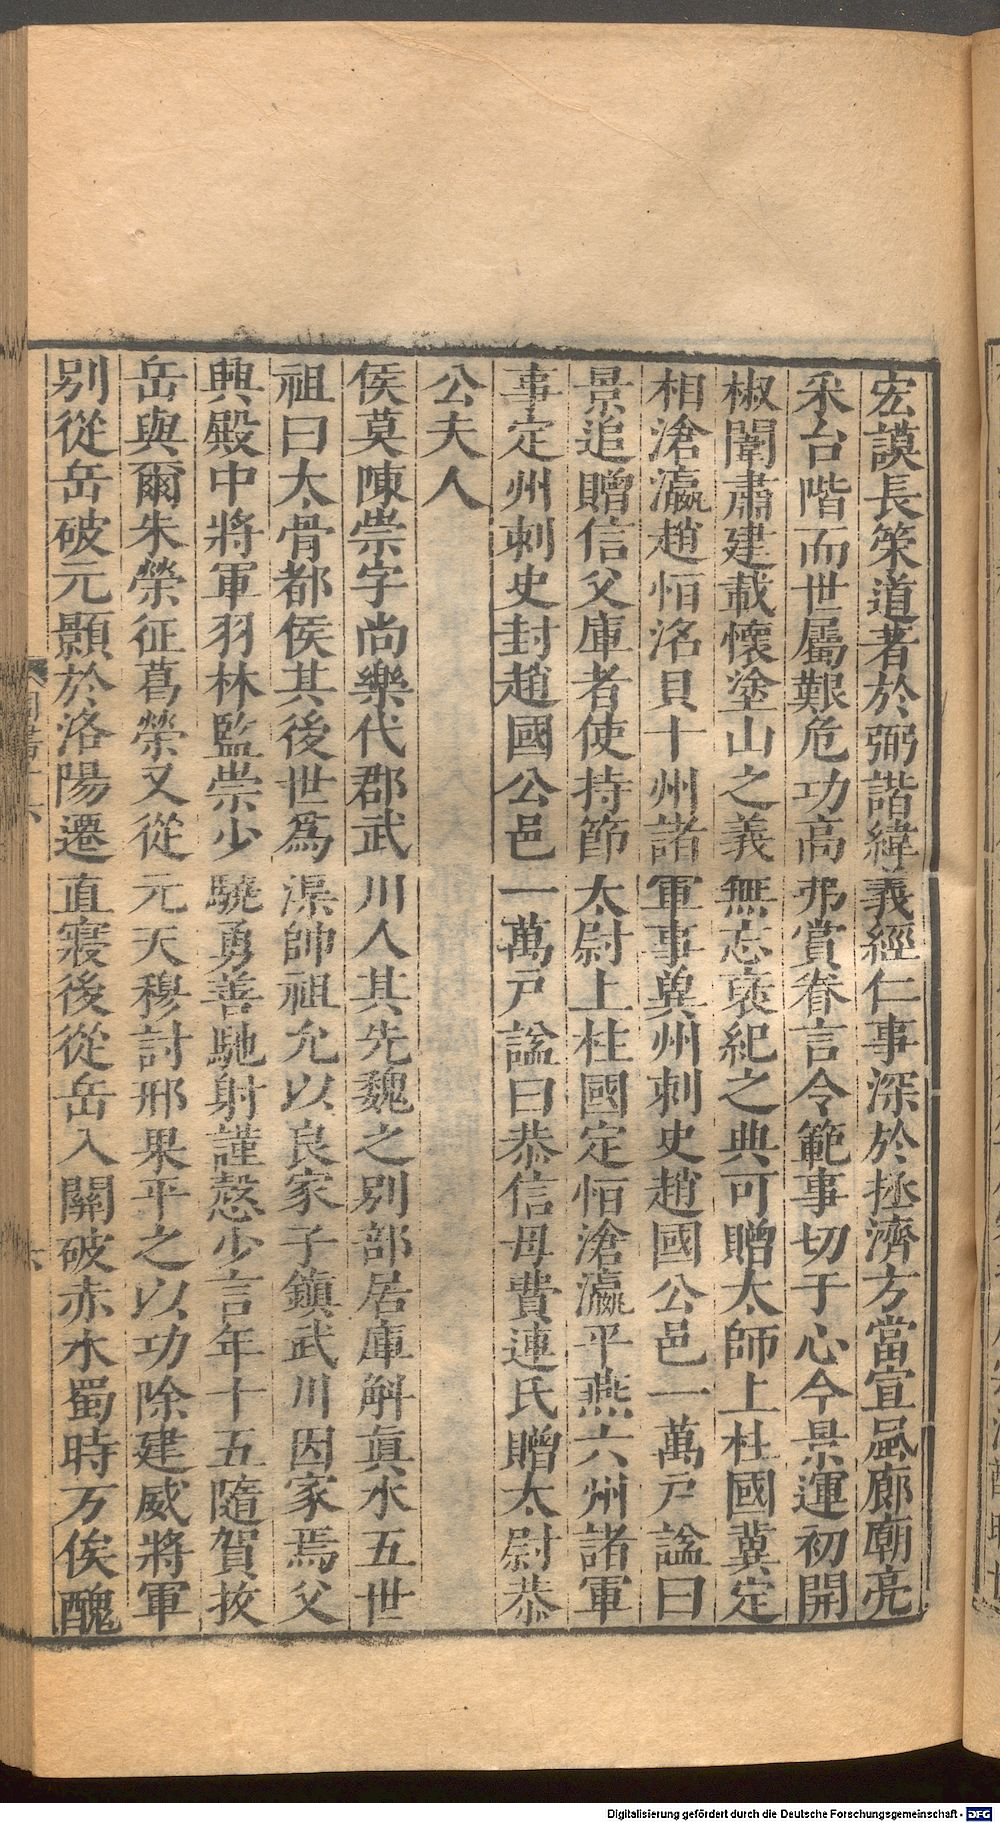 宏謨長策道著於弼諧緯義經仁事深於拯濟方當宣風廊廟亮
采台階而世屬艱危功高弗賞眷言令範事切于心今景運初開
椒闈肅建載懷塗山之義無忘褒紀之典可贈太師上柱國冀定
相滄瀛趙恒洺貝十州諸軍事冀州刺史趙國公邑一萬戶諡曰
景追贈信父庫者使持節太尉上柱國定恒滄瀛平燕六州諸軍
事定州刺史封趙國公邑一萬戶諡曰恭信母費連氏贈太尉恭
公夫人
侯莫陳崇字尚樂代郡武川人其先魏之別部居庫斛真水五世
祖曰太骨都侯其後世爲渠帥祖允以良家子鎮武川因家焉父
興殿中將軍羽林監崇少驍勇善馳射謹愨少言年十五隨賀拔
岳與爾朱榮征葛榮又從元天穆討邢杲平之以功除建威將軍
別從岳破元顥於洛陽遷直寢後從岳入關破赤水蜀時万俟醜
Digitalisierung gefördert durch die Deutsche Forschungsgemeinschaft - DFG